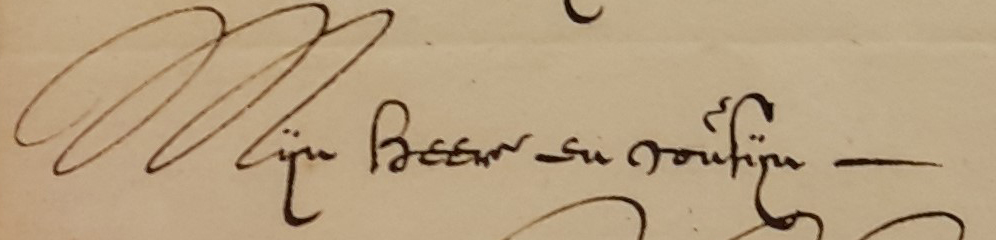 Mijn Heer en Cousijn